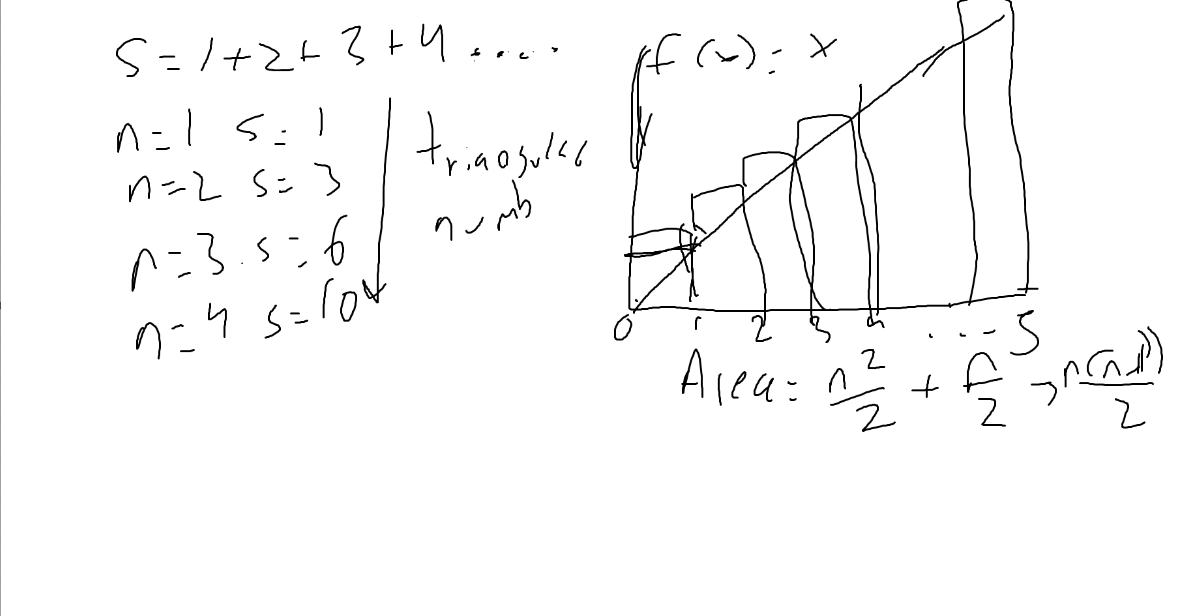 S = 1 + 2 + 3 + 4 .....
n = 1 S = 1
n = 2 S = 3
n = 3 . S = 6
n = 4 S = 10
numb
f(x) = x
0 1 2 3 4 ... 5
Area = n²/2 + n/2 → n(n+1)/2